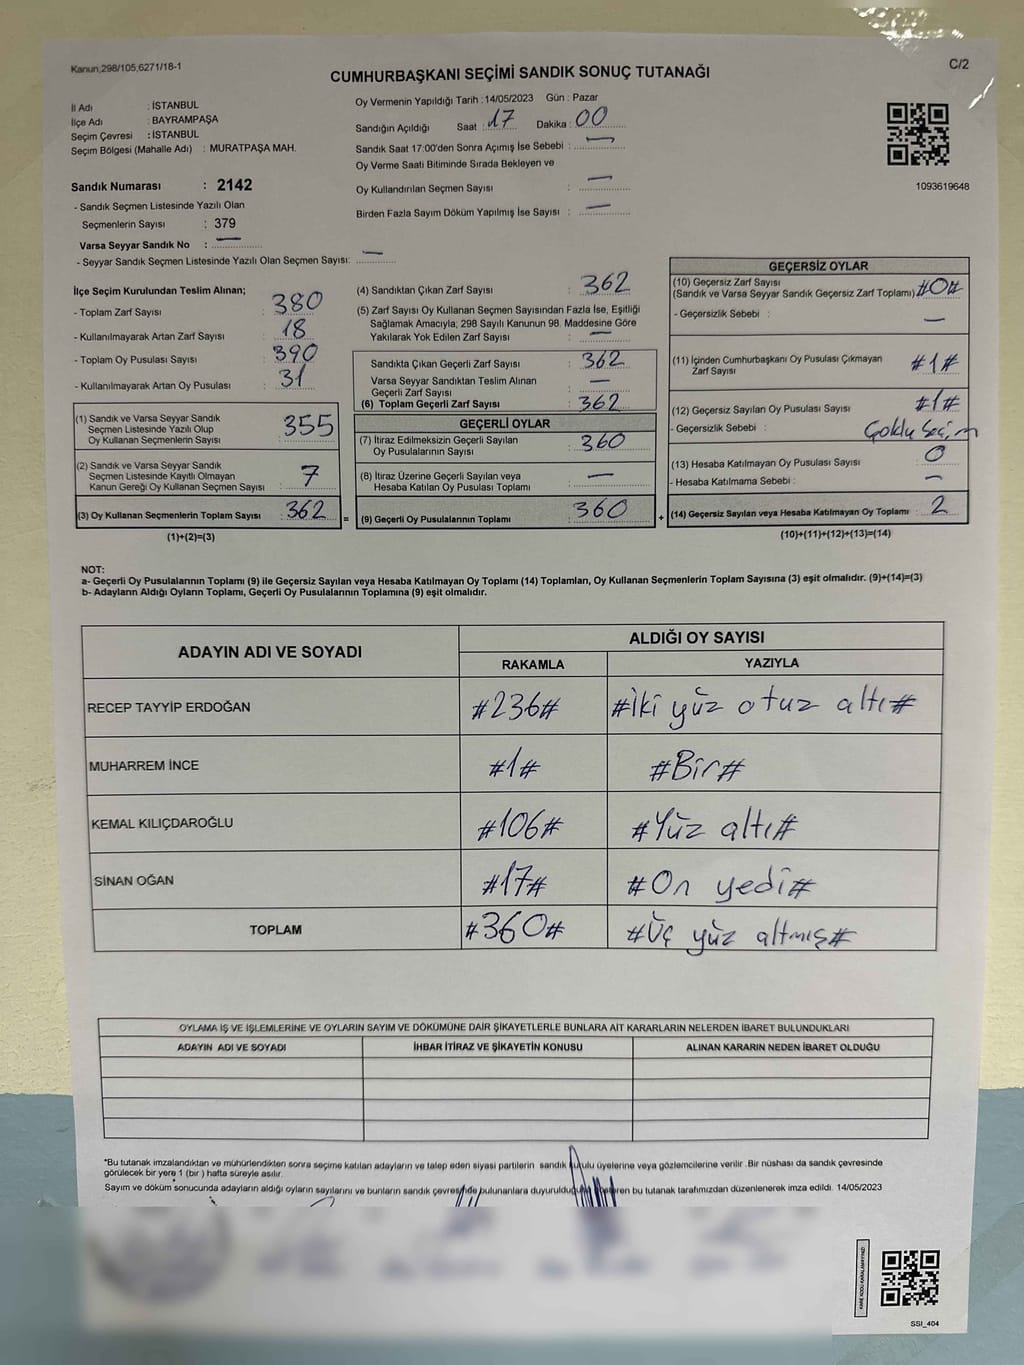 Kanun,298/105,6271/18-1
C/2
CUMHURBAŞKANI SEÇİMİ SANDIK SONUÇ TUTANAĞI
İl Adı : İSTANBUL
İlçe Adı : BAYRAMPAŞA
Seçim Çevresi : İSTANBUL
Seçim Bölgesi (Mahalle Adı) : MURATPAŞA MAH.
Sandık Numarası : 2142
- Sandık Seçmen Listesinde Yazılı Olan
Seçmenlerin Sayısı : 379
Varsa Seyyar Sandık No : —
- Seyyar Sandık Seçmen Listesinde Yazılı Olan Seçmen Sayısı: —
Oy Vermenin Yapıldığı Tarih : 14/05/2023 Gün : Pazar
Sandığın Açıldığı Saat : 17 Dakika : 00
Sandık Saat 17:00'den Sonra Açımış İse Sebebi : —
Oy Verme Saati Bitiminde Sırada Bekleyen ve
Oy Kullandırılan Seçmen Sayısı : —
Birden Fazla Sayım Döküm Yapılmış İse Sayısı : —
1093619648
İlçe Seçim Kurulundan Teslim Alınan;
- Toplam Zarf Sayısı : 380
- Kullanılmayarak Artan Zarf Sayısı : 18
- Toplam Oy Pusulası Sayısı : 390
- Kullanılmayarak Artan Oy Pusulası : 31
(1) Sandık ve Varsa Seyyar Sandık
Seçmen Listesinde Yazılı Olup
Oy Kullanan Seçmenlerin Sayısı : 355
(2) Sandık ve Varsa Seyyar Sandık
Seçmen Listesinde Kayıtlı Olmayan
Kanun Gereği Oy Kullanan Seçmen Sayısı : 7
(3) Oy Kullanan Seçmenlerin Toplam Sayısı : 362 =
(1)+(2)=(3)
(4) Sandıktan Çıkan Zarf Sayısı : 362
(5) Zarf Sayısı Oy Kullanan Seçmen Sayısından Fazla İse, Eşitliği
Sağlamak Amacıyla; 298 Sayılı Kanunun 98. Maddesine Göre
Yakılarak Yok Edilen Zarf Sayısı : —
Sandıkta Çıkan Geçerli Zarf Sayısı : 362
Varsa Seyyar Sandıktan Teslim Alınan
Geçerli Zarf Sayısı : —
(6) Toplam Geçerli Zarf Sayısı : 362
GEÇERLİ OYLAR
(7) İtiraz Edilmeksizin Geçerli Sayılan
Oy Pusulalarının Sayısı : 360
(8) İtiraz Üzerine Geçerli Sayılan veya
Hesaba Katılan Oy Pusulası Toplamı : —
(9) Geçerli Oy Pusulalarının Toplamı : 360 +
GEÇERSİZ OYLAR
(10) Geçersiz Zarf Sayısı
(Sandık ve Varsa Seyyar Sandık Geçersiz Zarf Toplamı) #0#
- Geçersizlik Sebebi : —
(11) İçinden Cumhurbaşkanı Oy Pusulası Çıkmayan
Zarf Sayısı : #1#
(12) Geçersiz Sayılan Oy Pusulası Sayısı : #1#
- Geçersizlik Sebebi : Çoklu Seçim
(13) Hesaba Katılmayan Oy Pusulası Sayısı : 0
- Hesaba Katılmama Sebebi : —
(14) Geçersiz Sayılan veya Hesaba Katılmayan Oy Toplamı : 2
(10)+(11)+(12)+(13)=(14)
NOT:
a- Geçerli Oy Pusulalarının Toplamı (9) ile Geçersiz Sayılan veya Hesaba Katılmayan Oy Toplamı (14) Toplamları, Oy Kullanan Seçmenlerin Toplam Sayısına (3) eşit olmalıdır. (9)+(14)=(3)
b- Adayların Aldığı Oyların Toplamı, Geçerli Oy Pusulalarının Toplamına (9) eşit olmalıdır.
ADAYIN ADI VE SOYADI ALDIĞI OY SAYISI
RAKAMLA YAZIYLA
RECEP TAYYİP ERDOĞAN #236# #İki yüz otuz altı#
MUHARREM İNCE #1# #Bir#
KEMAL KILIÇDAROĞLU #106# #Yüz altı#
SİNAN OĞAN #17# #On yedi#
TOPLAM #360# #Üç yüz altmış#
OYLAMA İŞ VE İŞLEMLERİNE VE OYLARIN SAYIM VE DÖKÜMÜNE DAİR ŞİKAYETLERLE BUNLARA AİT KARARLARIN NELERDEN İBARET BULUNDUKLARI
ADAYIN ADI VE SOYADI İHBAR İTİRAZ VE ŞİKAYETİN KONUSU ALINAN KARARIN NEDEN İBARET OLDUĞU
*Bu tutanak imzalandıktan ve mühürlendikten sonra seçime katılan adayların ve talep eden siyasi partilerin sandık kurulu üyelerine veya gözlemcilerine verilir .Bir nüshası da sandık çevresinde
görülecek bir yere 1 (bir ) hafta süreyle asılır.
Sayım ve döküm sonucunda adayların aldığı oyların sayılarını ve bunların sandık çevresinde bulunanlara duyurulduğunu gösteren bu tutanak tarafımızdan düzenlenerek imza edildi. 14/05/2023
SSI_404